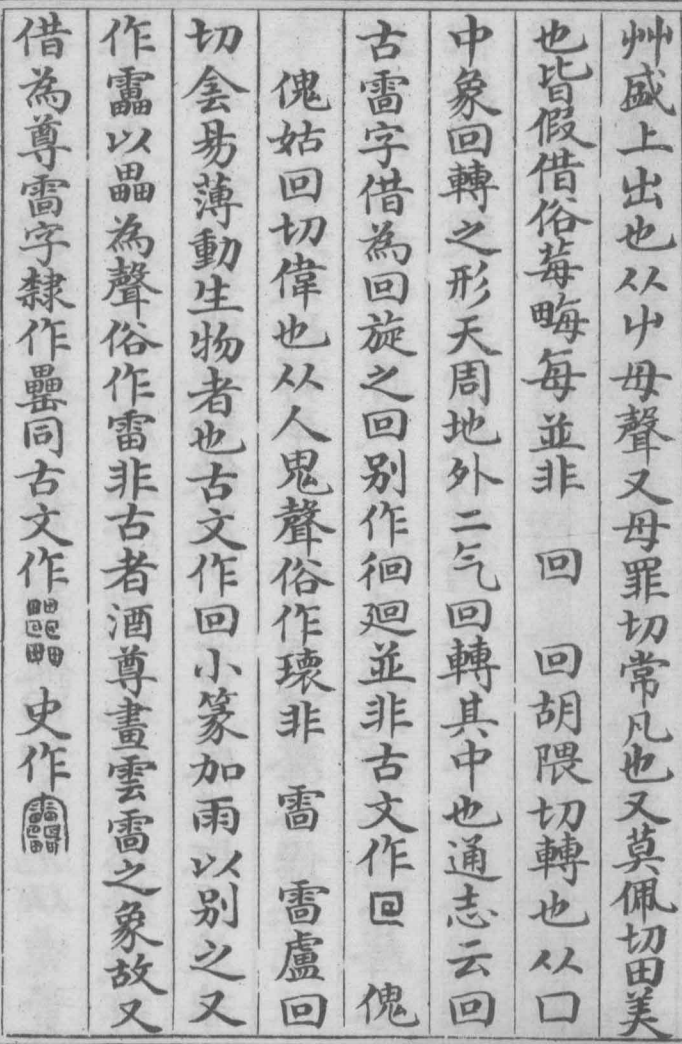 艸盛上出也从屮母聲又母罪切常凡也又莫佩切田美
也皆假借俗莓畮每並非　回　回胡隈切轉也从囗
中象回轉之形天周地外二气回轉其中也通志云回
古雷字借為回旋之回别作徊廻並非古文作　傀
傀姑回切偉也从人鬼聲俗作瓌非　𤴐　𤴐盧回
切侌昜薄動生物者也古文作回小篆加雨以别之又
作靁以畾為聲俗作雷非古者酒尊畫雲𤴐之象故又
借為尊𤴐字隸作罍同古文作　史作